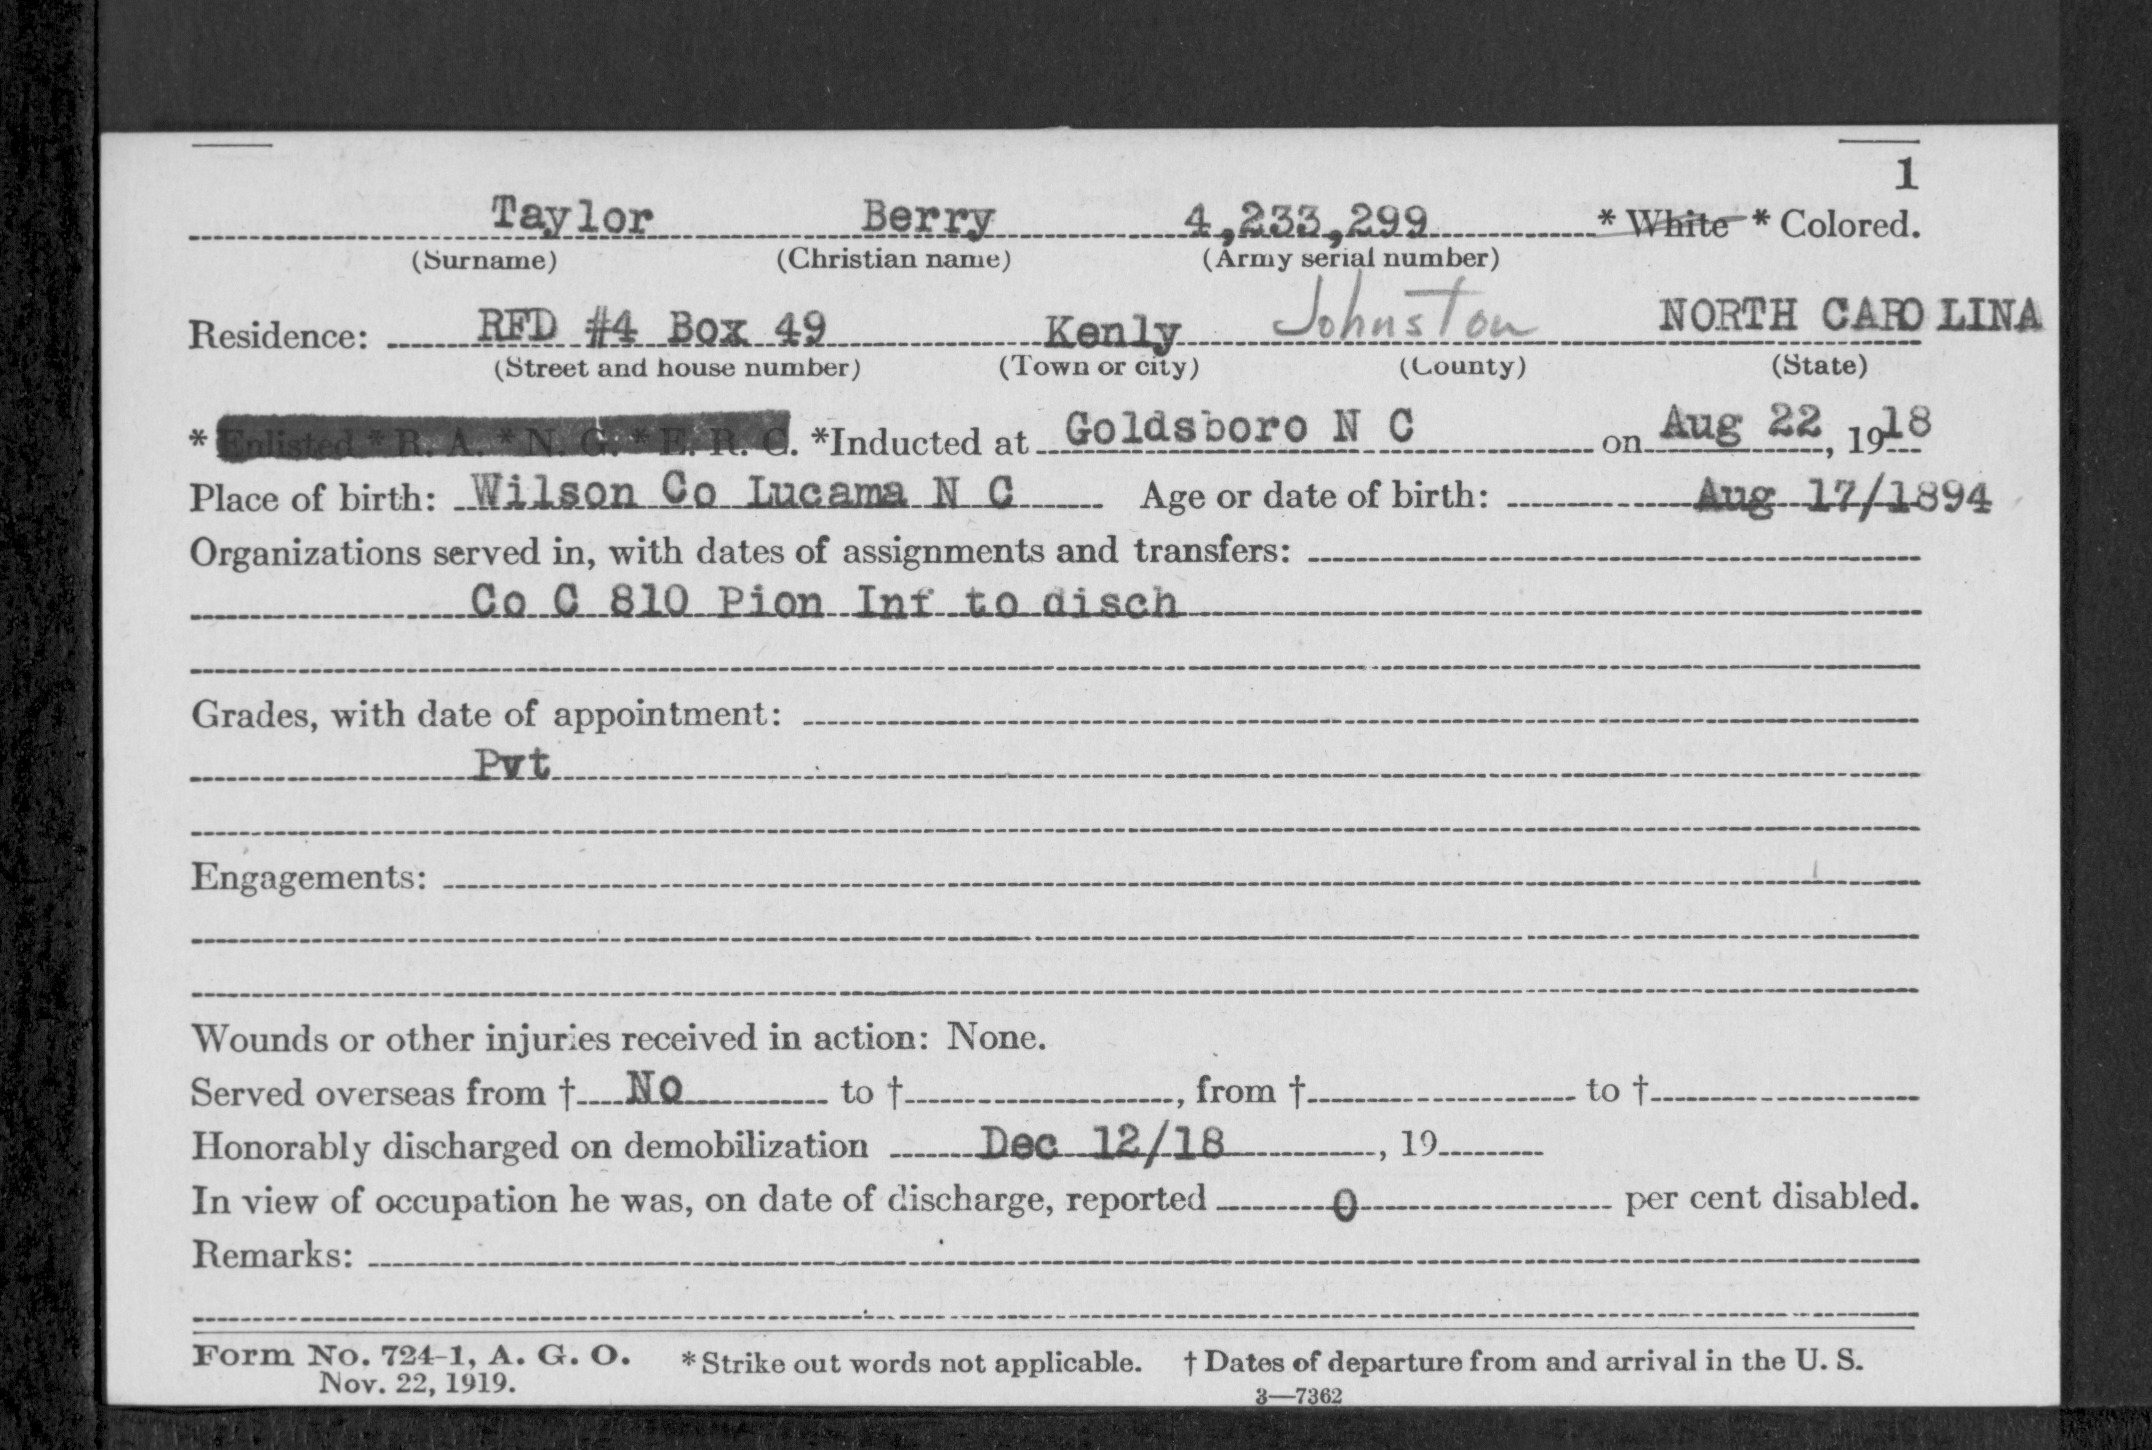 1
Taylor Berry 4,233,299 * White * Colored.
(Surname) (Christian name) (Army serial number)
Residence: RFD #4 Box 49 Kenly Johnston NORTH CAROLINA
(Street and house number) (Town or city) (County) (State)
* Enlisted * R. A. * N. G. * E. R. C. *Inducted at Goldsboro N C on Aug 22, 1918
Place of birth: Wilson Co Lucama N C Age or date of birth: Aug 17/1894
Organizations served in, with dates of assignments and transfers:
Co C 810 Pion Inf to disch
Grades, with date of appointment:
Pvt
Engagements:
Wounds or other injuries received in action: None.
Served overseas from † No to †, from † to †
Honorably discharged on demobilization Dec 12/18, 19
In view of occupation he was, on date of discharge, reported 0 per cent disabled.
Remarks:
Form No. 724-1, A. G. O. * Strike out words not applicable. † Dates of departure from and arrival in the U. S.
Nov. 22, 1919.
3—7362